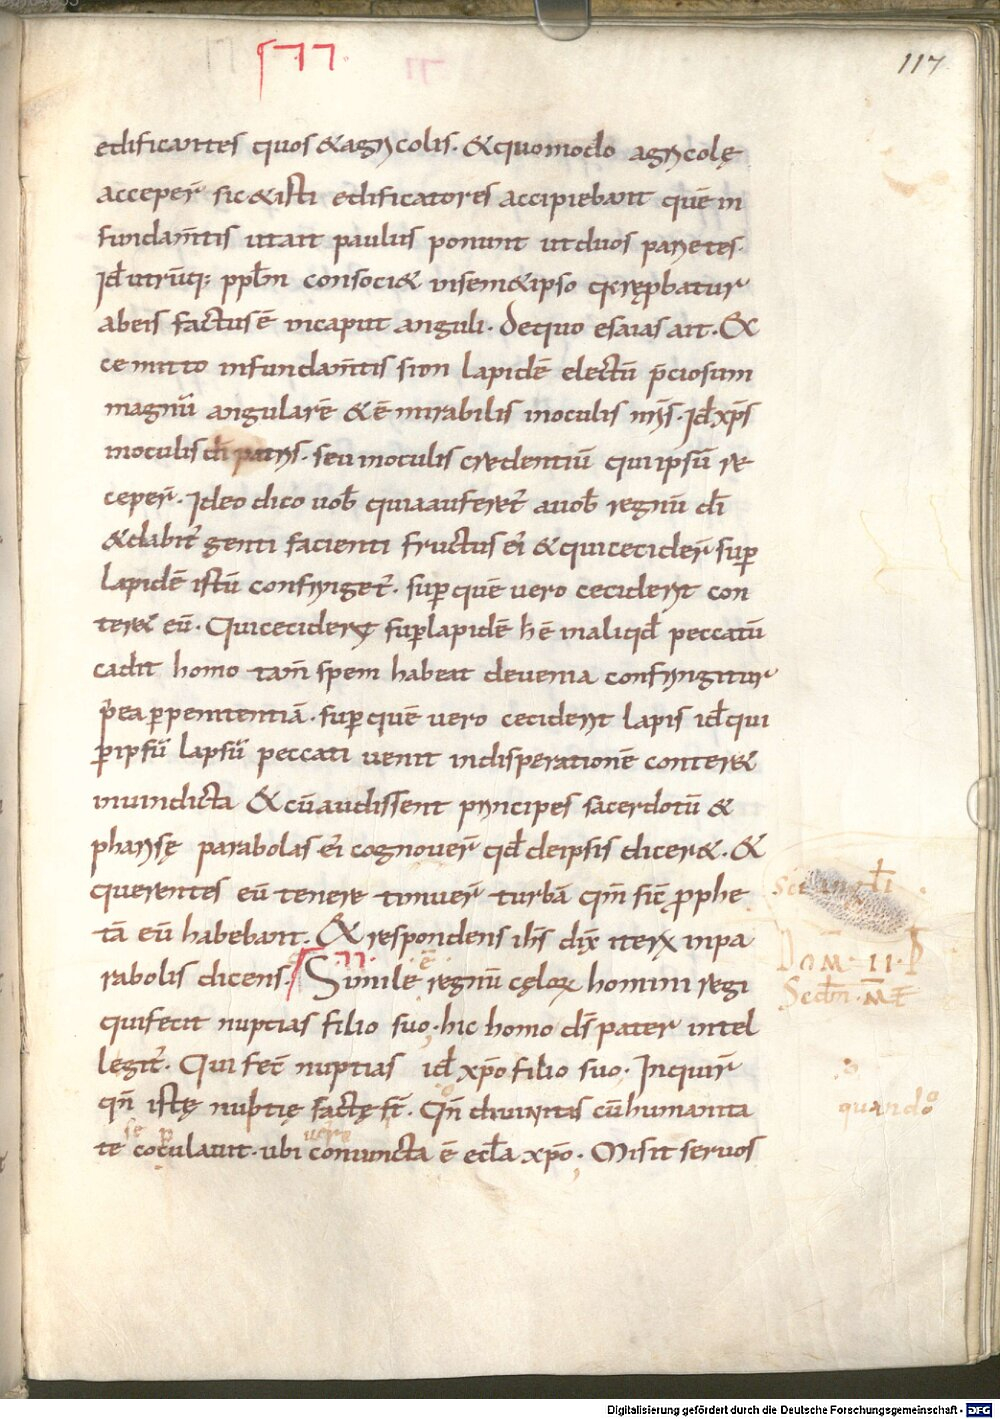 117
edificantes quos &agricolis. &quomodo agricolę
acceper̄ sic&isti edificatores accipiebant quē in
fundam̄tis ut ait paulus ponunt ut duos parietes.
Id utrūq; pp̄lm consoci& in sem&ipso qui rep̄batur
ab eis factus ē in caput anguli. De quo esaias ait. Ec
ce mitto in fundam̄tis sion lapidē electū p̄ciosum
magnū angularē & ē mirabilis in oculis nr̄is. Id xp̄s
in oculis dī patris. seu in oculis credentiū qui ipsū re
ceper̄. Ideo dico uob̄ quia auferet̄ a uob̄ regnū dī
& dabit̄ genti facienti fructus ei' & qui cecider̄ sup̄
lapidē istū confringet̄. sup̄ quē vero ceciderit con
ter& eū. Qui ceciderit sup̄ lapidē h̄ ē in aliqd̄ peccatū
cadit homo tam̄ spem habeat de uenia confringitur
p̄ ea p̄ penitentiā. sup̄ quē vero ceciderit lapis id̄ qui
p̄ ipsū lapsū peccati uenit in disperationē conter&
in uindicta & cū audissent principes sacerdotū &
pharisę parabolas ei' cognouer̄ qd̄ de ipsis dicer&. &
querentes eū tenere timuer̄ turbā qm̄ sic̄ p̄phe
tā eū habebant. & respondens ih̄s dix̄ iterū in pa
rabolis dicens. Simile ē regnū cęlorū homini regi
qui fecit nuptias filio suo. hic homo dī pater intel
legit̄. Qui fec̄ nuptias id̄ xp̄o filio suo. Inquir̄
qn̄ istę nubtię factę s̄t. Qn̄ diuinitas cū humanita
te se copulauit. ubi coniuncta ē eccl̄a xp̄o. Misit seruos
Dom̄ II P
Scd̄m M̄t
quando